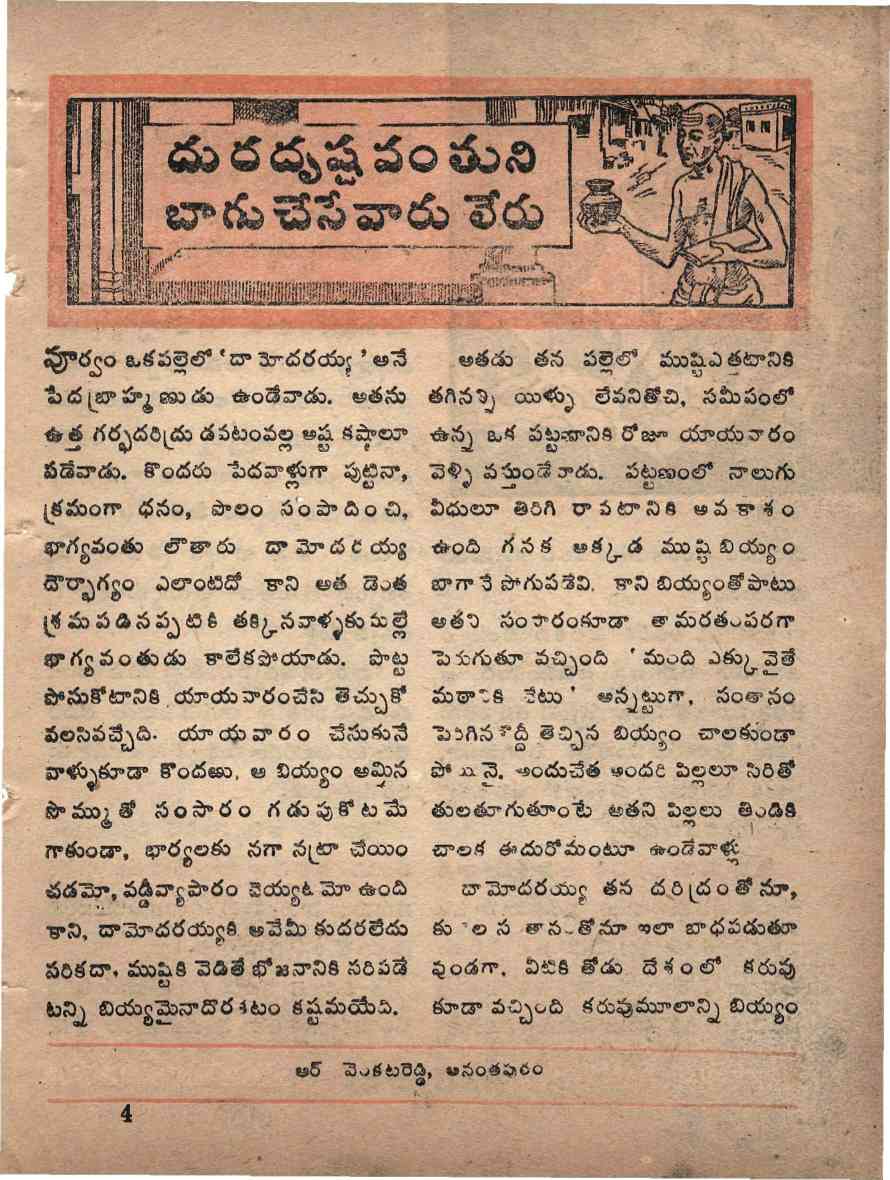 దురదృష్టవంతుని
బాగుచేసేవారు లేరు
పూర్వం ఒకపల్లెలో 'దామోదరయ్య' అనే
పేదబ్రాహ్మణుడు ఉండేవాడు. అతను
ఉత్త గర్భదరిద్రు డవటంవల్ల అష్ట కష్టాలూ
పడేవాడు. కొందరు పేదవాళ్లుగా పుట్టినా,
క్రమంగా ధనం, పొలం సంపాదించి,
భాగ్యవంతు లౌతారు దామోదరయ్య
దౌర్భాగ్యం ఎలాంటిదో కాని అత డెంత
శ్రమపడినప్పటికి తక్కినవాళ్ళకుమల్లే
భాగ్యవంతుడు కాలేకపోయాడు. పొట్ట
పోసుకోటానికి యాయవారంచేసి తెచ్చుకో
వలసివచ్చేది. యాయవారం చేసుకునే
వాళ్ళుకూడా కొందఱు, ఆ బియ్యం అమ్మిన
సొమ్ముతో సంసారం గడుపుకోటమే
గాకుండా, భార్యలకు నగా నట్రా చేయిం
చడమో, వడ్డీవ్యాపారం చెయ్యటమో ఉంది
కాని, దామోదరయ్యకి అవేమీ కుదరలేదు
సరికదా, ముష్టికి వెడితే భోజనానికి సరిపడే
టన్ని బియ్యమైనాదొరకటం కష్టమయేది.
అతడు తన పల్లెలో ముష్టిఎత్తటానికి
తగినన్ని యిళ్ళు లేవనితోచి, సమీపంలో
ఉన్న ఒక పట్టణానికి రోజూ యాయవారం
వెళ్ళి వస్తుండేవాడు. పట్టణంలో నాలుగు
వీధులూ తిరిగి రావటానికి అవకాశం
ఉంది గనక అక్కడ ముష్టి బియ్యం
బాగానే పోగుపడేవి. కాని బియ్యంతోపాటు
అతని సంసారంకూడా తామరతంపరగా
పెరుగుతూ వచ్చింది 'మంది ఎక్కువైతే
మఠానికి చేటు' అన్నట్టుగా, సంతానం
పెరిగినకొద్దీ తెచ్చిన బియ్యం చాలకుండా
పోయినై. అందుచేత అందరి పిల్లలూ సిరితో
తులతూగుతూంటే అతని పిల్లలు తిండికి
చాలక ఈదురోమంటూ ఉండేవాళ్లు
దామోదరయ్య తన దరిద్రంతోనూ,
ఇలా బాధపడుతూ
వుండగా, వీటికి తోడు దేశంలో కరువు
కూడా వచ్చింది కరువుమూలాన్ని బియ్యం
ఆర్ వెంకటరెడ్డి, అనంతపురం
4